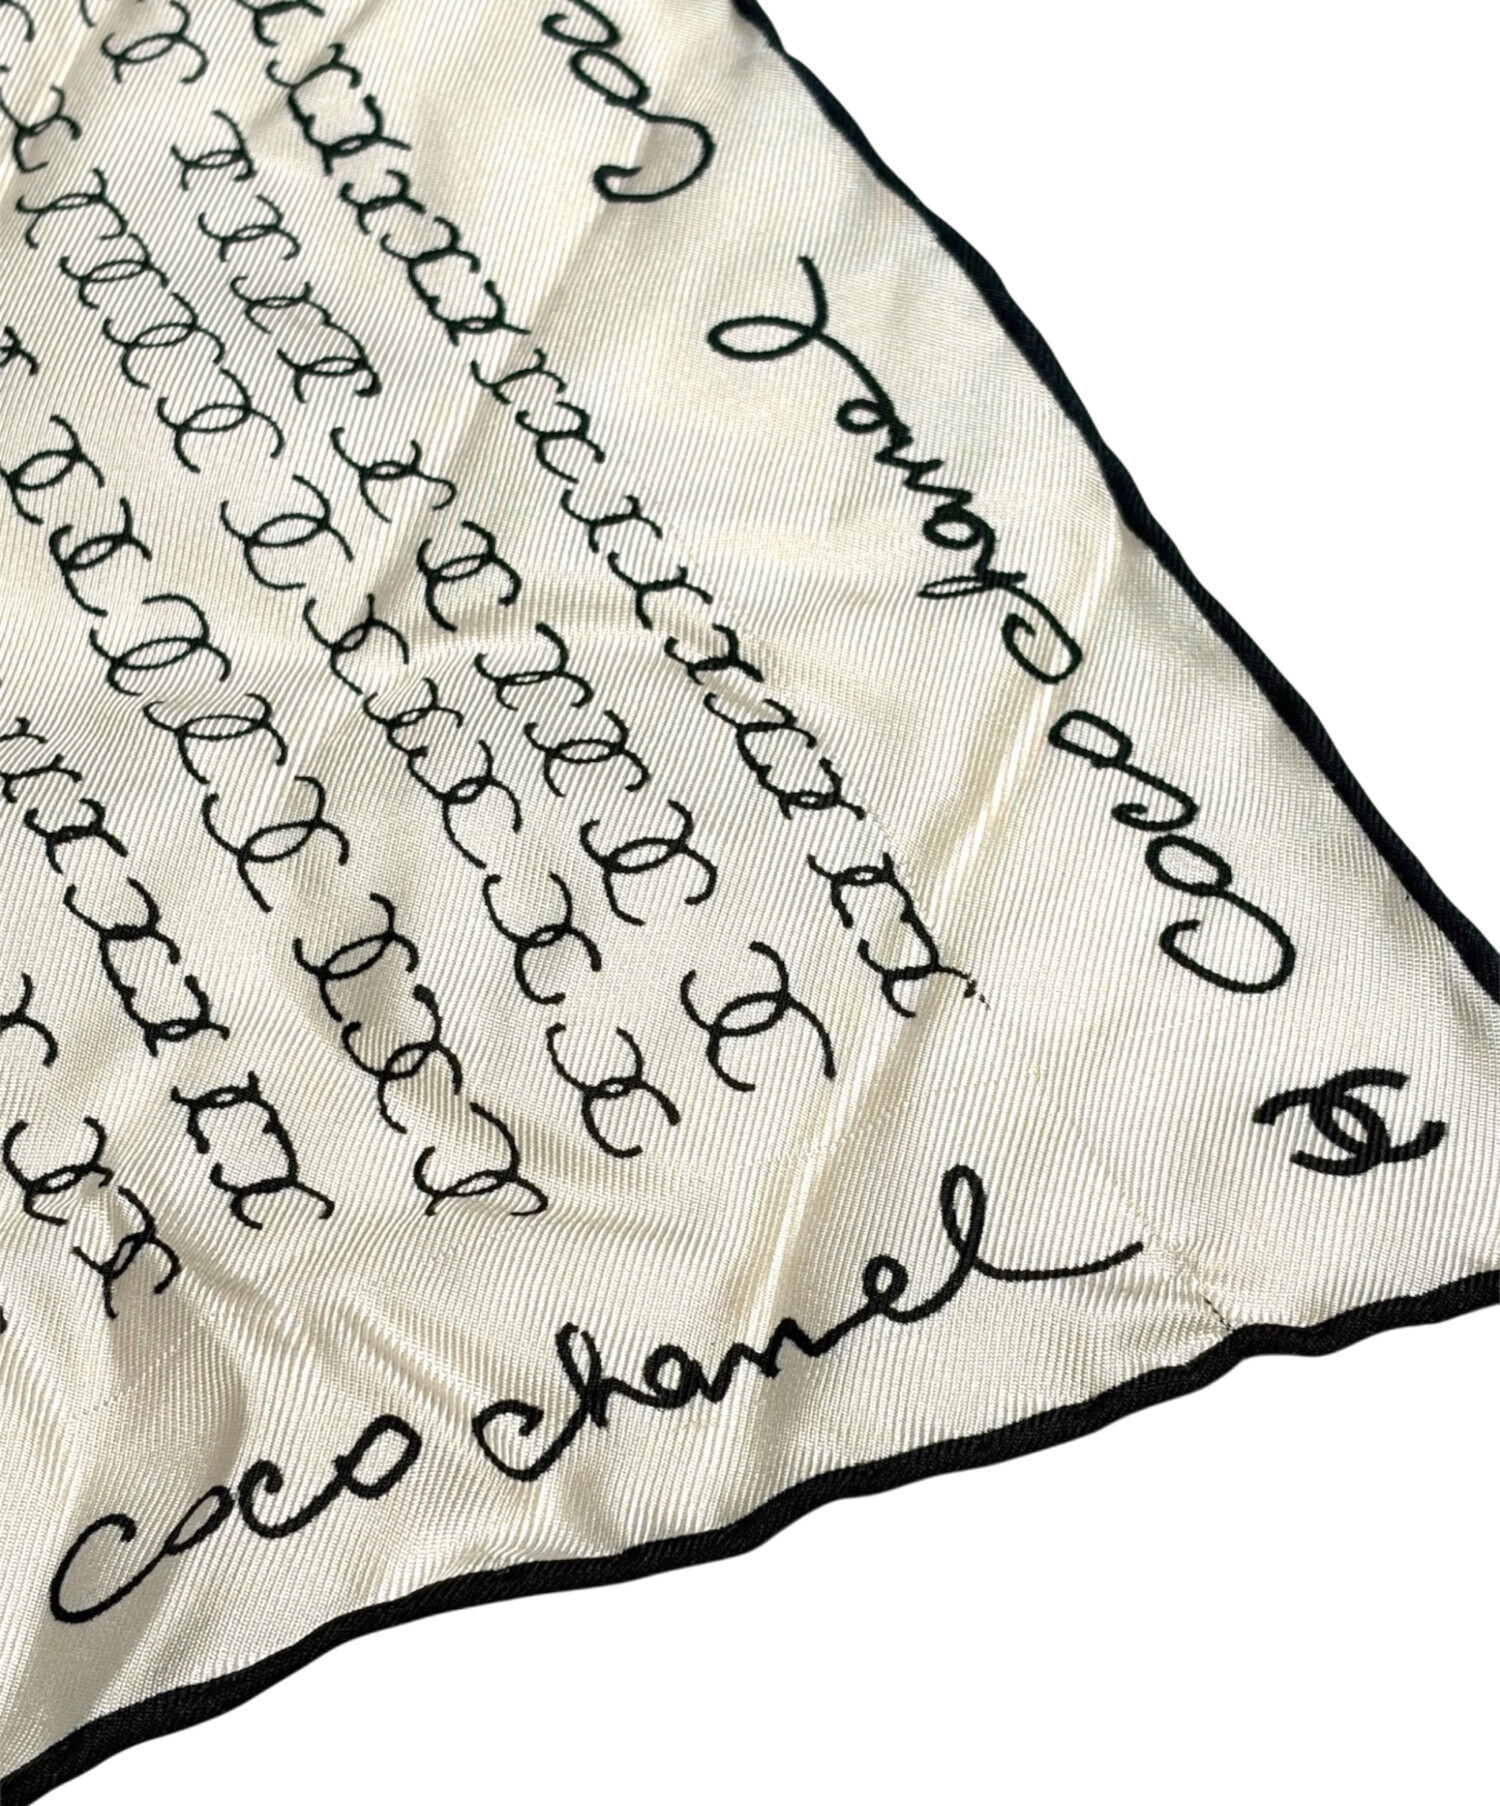 coco chanel
coco chanel
coc